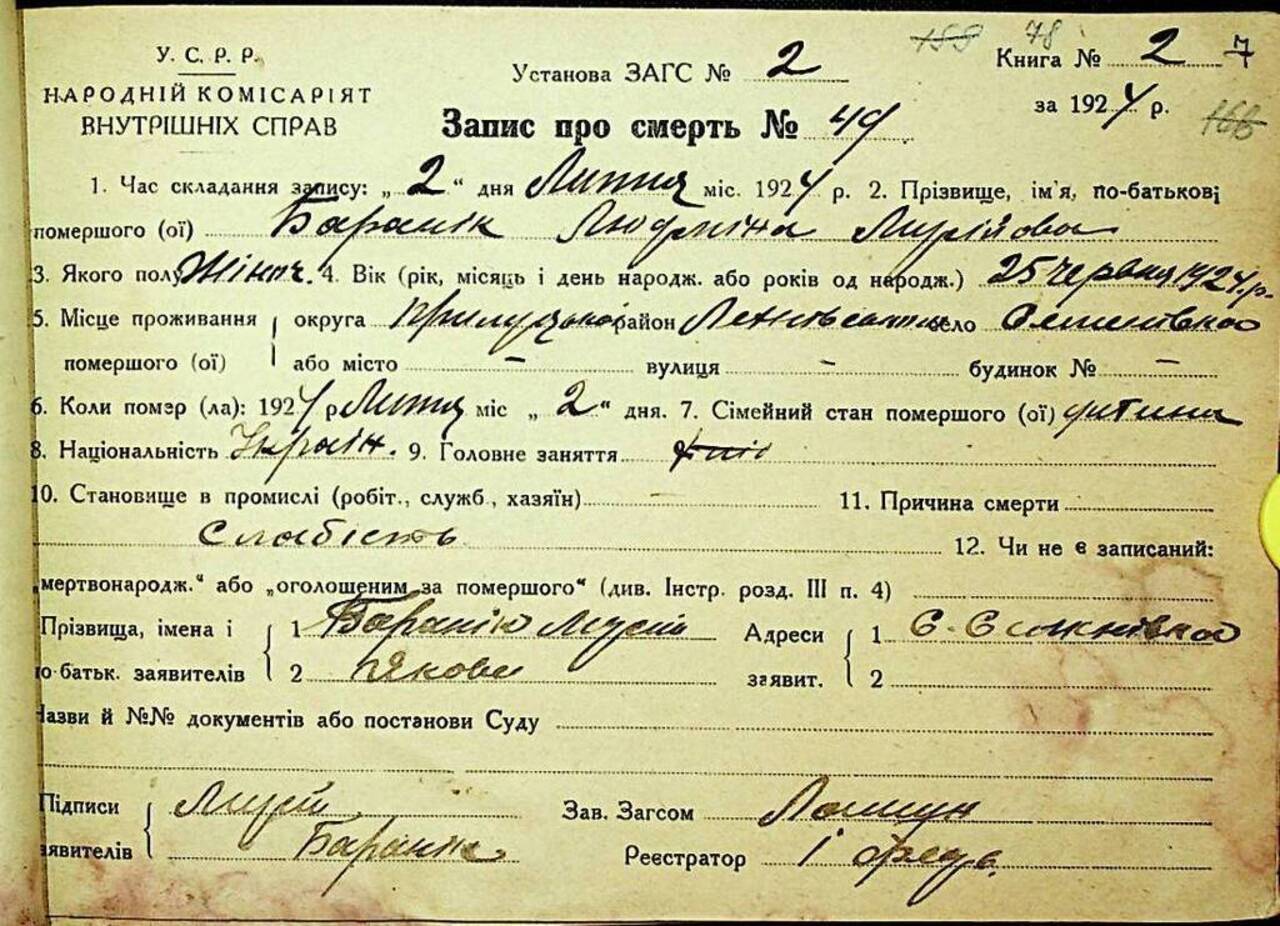 У. С. Р. Р.
НАРОДНІЙ КОМІСАРІЯТ
ВНУТРІШНІХ СПРАВ
Установа ЗАГС № 2
78
Книга № 2 7
за 1924 р.
Запис про смерть № 49
1. Час складання запису: „ 2 “ дня Липня міс. 1924 р. 2. Прізвище, ім'я, по-батькові
помершого (ої) Баранік Людміла
3. Якого полу Жіноч. 4. Вік (рік, місяць і день народж. або років од народж.) 25 червня 1924 р.
5. Місце проживання округа Прилуцької район село
помершого (ої) або місто – вулиця – будинок № –
6. Коли помэр (ла): 1924 р Липня міс „ 2 “ дня. 7. Сімейний стан помершого (ої) дитина
8. Національність Україн. 9. Головне заняття
10. Становище в промислі (робіт., служб., хазяїн) 11. Причина смерти
Слабість 12. Чи не є записаний:
„мертвонародж.“ або „оголошеним за помершого“ (див. Інстр. розд. III п. 4)
Прізвища, імена і 1 Баранік Мусій Адреси 1 С.
о-батьк. заявителів 2 Якович заявит. 2
азви й №№ документів або постанови Суду
Підписи Мусій Зав. Загсом
аявителів Баранік Реєстратор